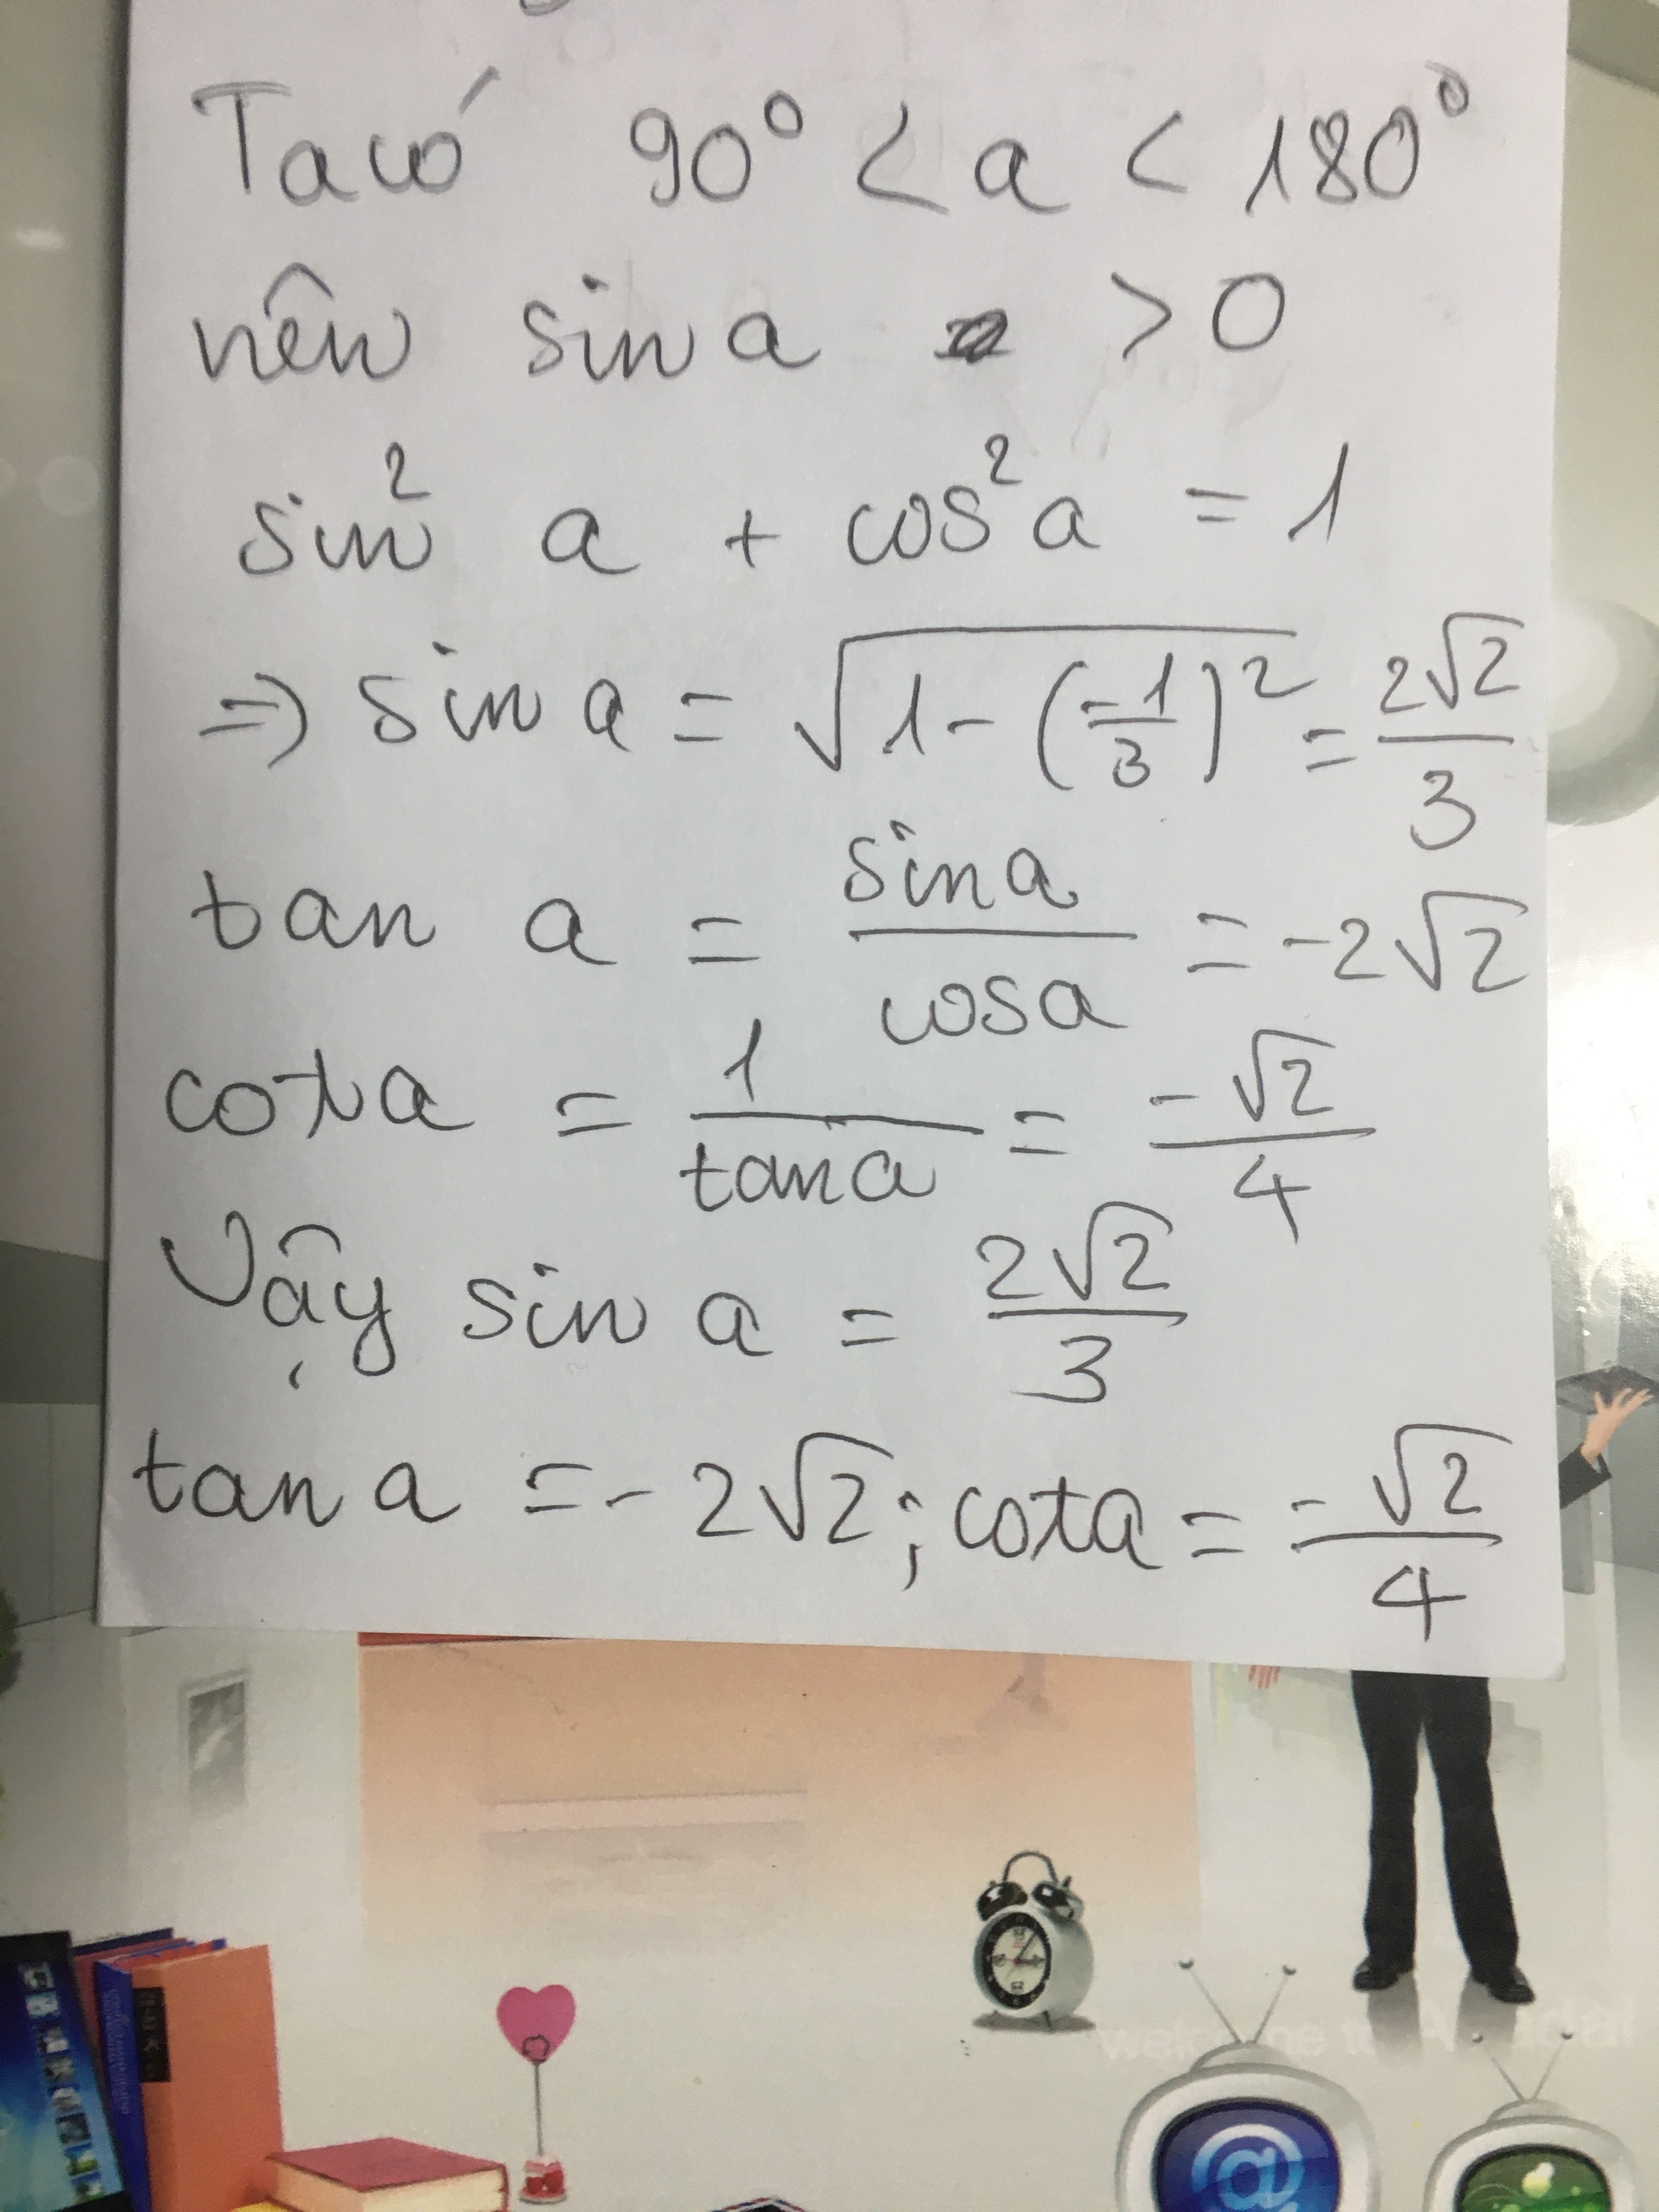 Ta có 90° < a < 180°
nên sin a > 0
sin² a + cos² a = 1
=> sin a = √(1 - (-1/3)²) = 2√2/3
tan a = sin a/cos a = -2√2
cot a = 1/tan a = -√2/4
Vậy sin a = 2√2/3
tan a = -2√2; cot a = -√2/4
@